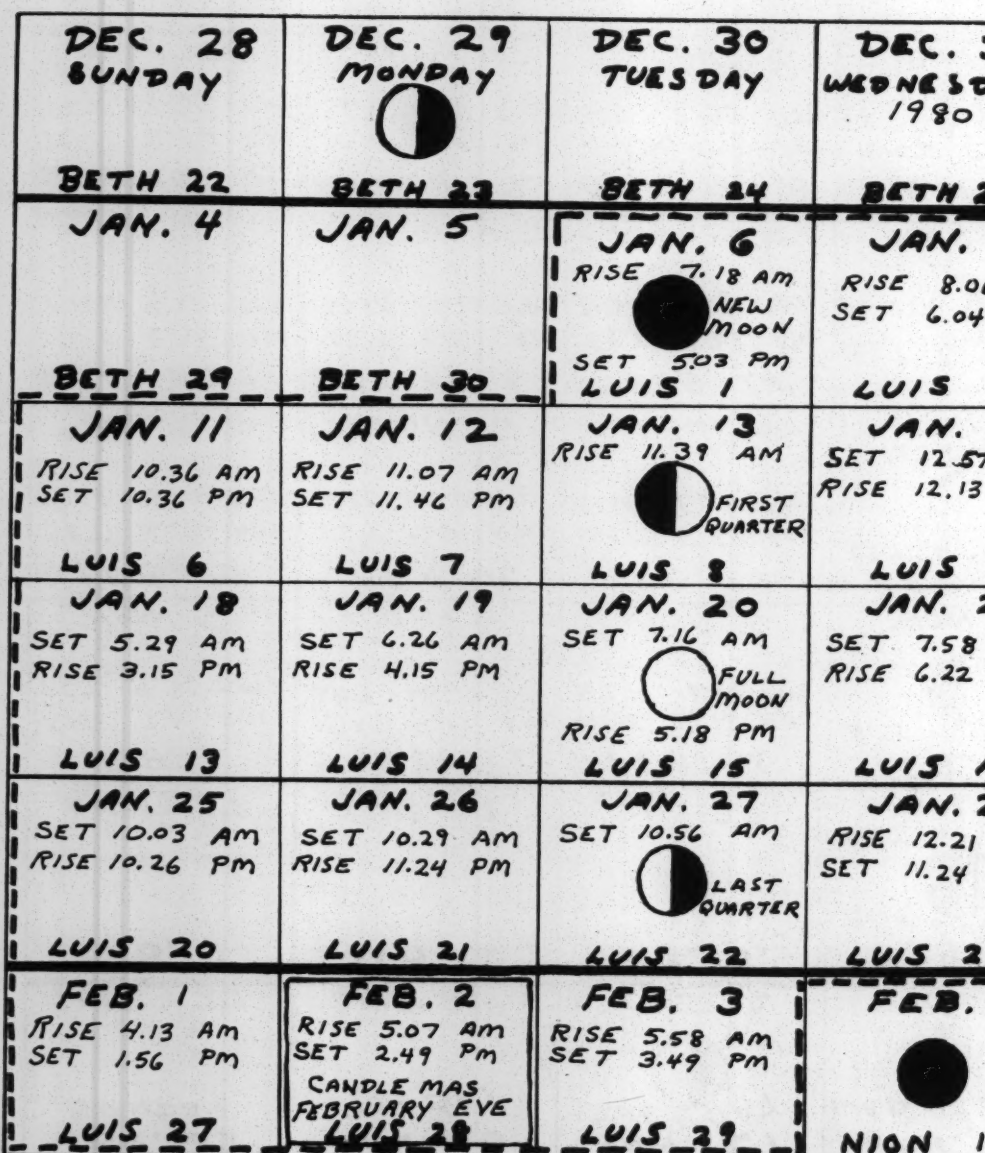 DEC. 28
SUNDAY
BETH 22
DEC. 29
MONDAY
BETH 23
DEC. 30
TUESDAY
BETH 24
DEC.
1980
BETH
JAN. 4
BETH 29
JAN. 5
BETH 30
JAN. 6
RISE 7.18 AM
NEW
MOON
SET 5.03 PM
LUIS 1
JAN.
RISE
SET 6.04
LUIS
JAN. 11
RISE 10.36 AM
SET 10.36 PM
LUIS 6
JAN. 12
RISE 11.07 AM
SET 11.46 PM
LUIS 7
JAN. 13
RISE 11.39 AM
FIRST
QUARTER
LUIS 8
JAN.
SET 12.57
RISE 12.13
LUIS
JAN. 18
SET 5.29 AM
RISE 3.15 PM
LUIS 13
JAN. 19
SET 6.26 AM
RISE 4.15 PM
LUIS 14
JAN. 20
SET 7.16 AM
FULL
MOON
RISE 5.18 PM
LUIS 15
JAN.
SET 7.58
RISE 6.22
LUIS
JAN. 25
SET 10.03 AM
RISE 10.26 PM
LUIS 20
JAN. 26
SET 10.29 AM
RISE 11.24 PM
LUIS 21
JAN. 27
SET 10.56 AM
LAST
QUARTER
LUIS 22
JAN.
RISE 12.21
SET 11.24
LUIS
FEB. 1
RISE 4.13 AM
SET 1.56 PM
LUIS 27
FEB. 2
RISE 5.07 AM
SET 2.49 PM
CANDLE MAS
FEBRUARY EVE
LUIS 28
FEB. 3
RISE 5.58 AM
SET 3.49 PM
LUIS 29
FEB.
NION 1